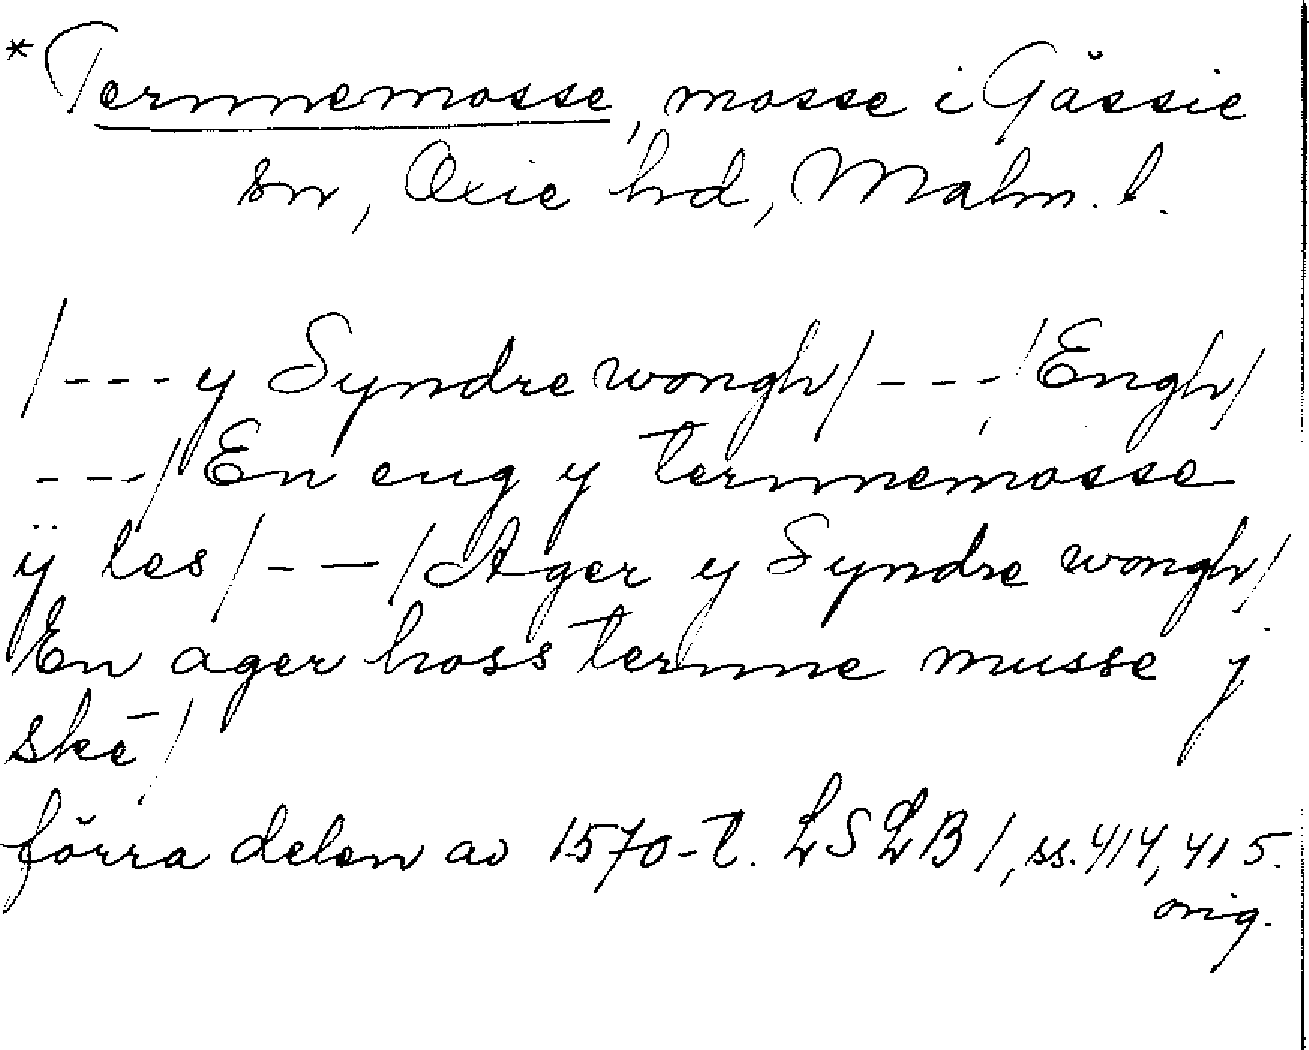 *Ternnemosse, mosse i Gässie
sn, Oxie hd, Malm. l.
/---y Syndre wongh/---/Engh/
---/En eng y ternnemosse
ÿ les/---/Ager y Syndre wongh/
En ager hoss ternne musse j
skē/
förra delen av 1570-t. LSLB 1, ss. 414, 415.
orig.